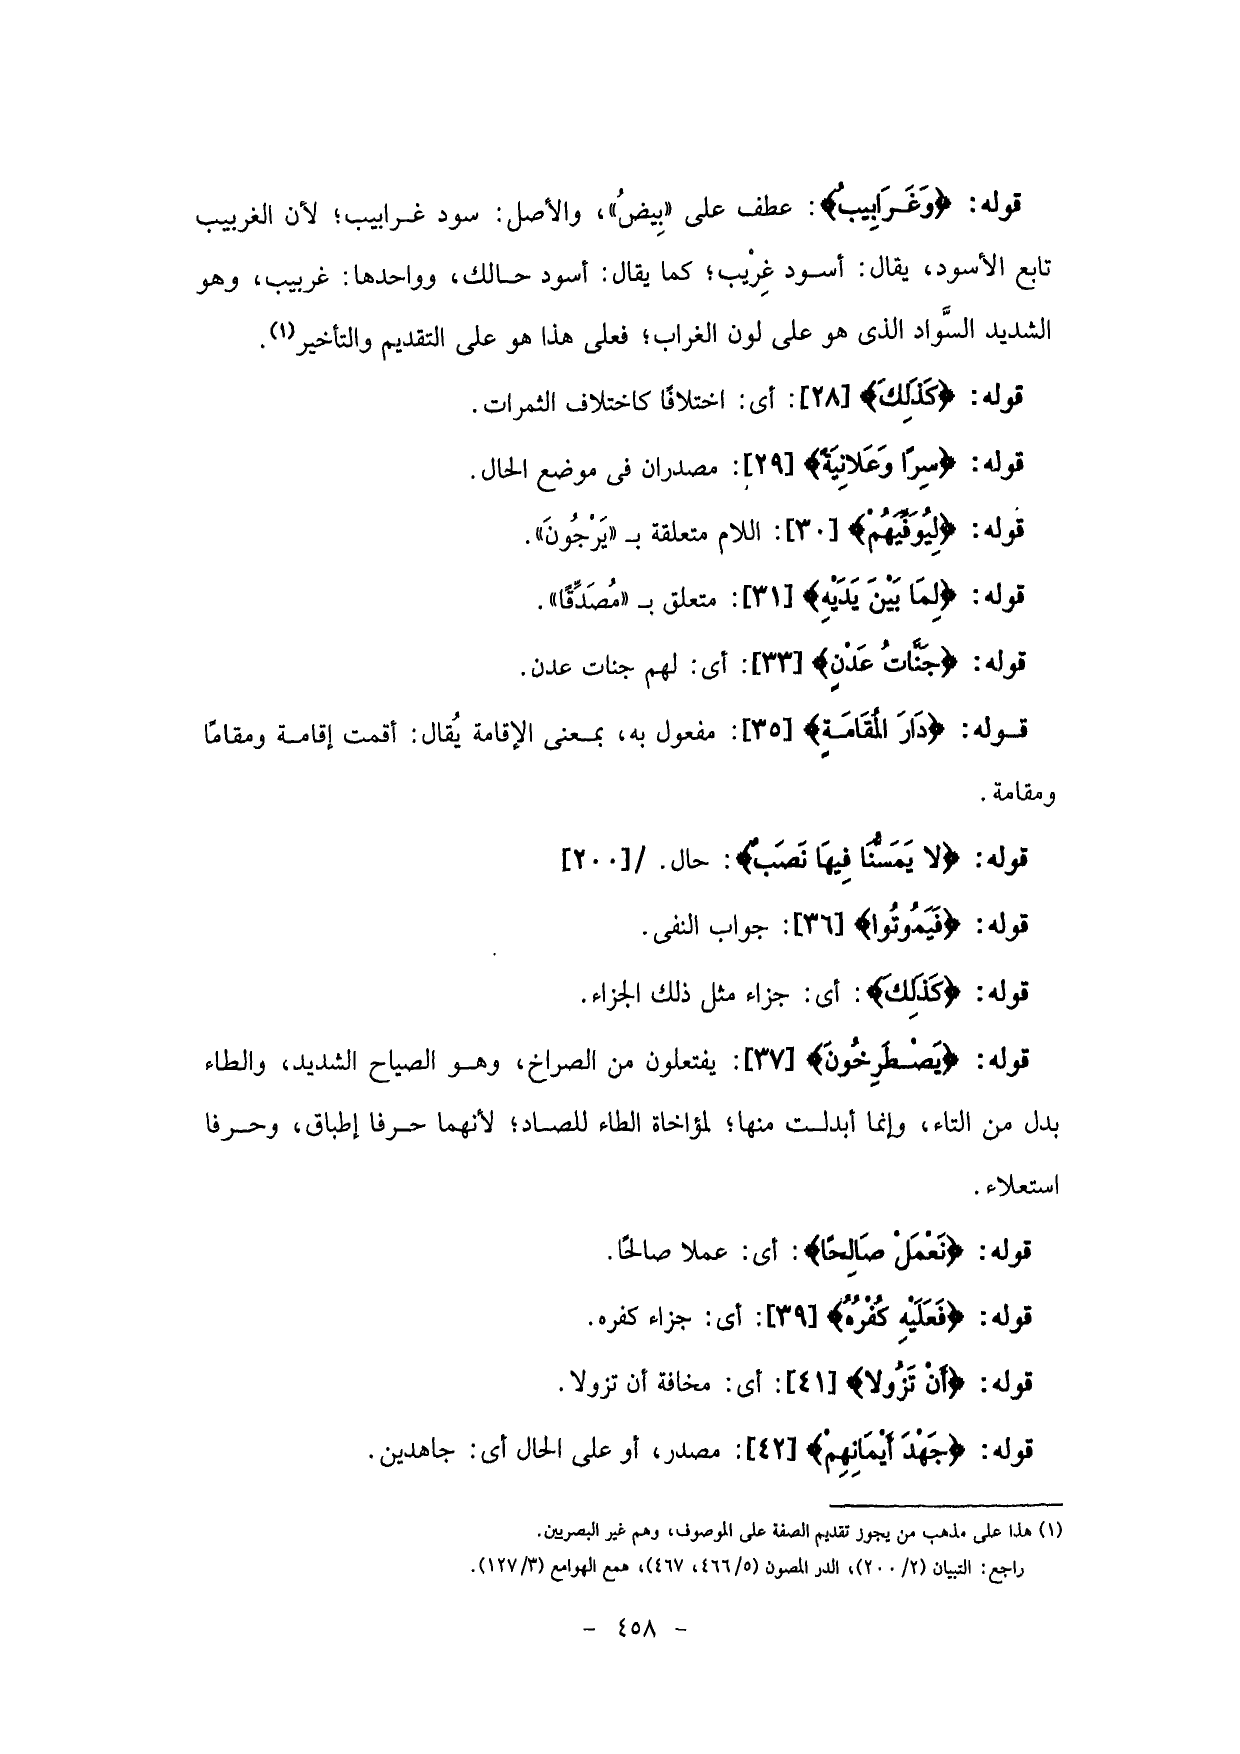 قوله: ﴿وَغَرَابِيبُ﴾: عطف على «بِيضُ»، والأصل: سود غرابيب؛ لأن الغربيب
تابع الأسود، يقال: أسود غِرْبيب؛ كما يقال: أسود حالك، وواحدها: غربيب، وهو
الشديد السَّواد الذى هو على لون الغراب؛ فعلى هذا هو على التقديم والتأخير(١).
قوله: ﴿كَذَلِكَ﴾ [٢٨]: أى: اختلافًا كاختلاف الثمرات.
قوله: ﴿سِرًا وَعَلانِيَةً﴾ [٢٩]: مصدران فى موضع الحال.
قوله: ﴿لِيُوَفِّيَهُمْ﴾ [٣٠]: اللام متعلقة بـ «يَرْجُونَ».
قوله: ﴿لِمَا بَيْنَ يَدَيْهِ﴾ [٣١]: متعلق بـ «مُصَدِّقًا».
قوله: ﴿جَنَّاتُ عَدْنٍ﴾ [٣٣]: أى: لهم جنات عدن.
قوله: ﴿دَارَ الْمُقَامَةِ﴾ [٣٥]: مفعول به، بمعنى الإقامة يُقال: أقمت إقامة ومقامًا
ومقامة.
قوله: ﴿لا يَمَسُّنَا فِيهَا نَصَبٌ﴾: حال. /[٢٠٠]
قوله: ﴿فَيَمُوتُوا﴾ [٣٦]: جواب النفى.
قوله: ﴿كَذَلِكَ﴾: أى: جزاء مثل ذلك الجزاء.
قوله: ﴿يَصْطَرِخُونَ﴾ [٣٧]: يفتعلون من الصراخ، وهو الصياح الشديد، والطاء
بدل من التاء، وإنما أبدلت منها؛ لمؤاخاة الطاء للصاد؛ لأنهما حرفا إطباق، وحرفا
استعلاء.
قوله: ﴿نَعْمَلْ صَالِحًا﴾: أى: عملا صالحًا.
قوله: ﴿فَعَلَيْهِ كُفْرُهُ﴾ [٣٩]: أى: جزاء كفره.
قوله: ﴿أَنْ تَزُولا﴾ [٤١]: أى: مخافة أن تزولا.
قوله: ﴿جَهْدَ أَيْمَانِهِمْ﴾ [٤٢]: مصدر، أو على الحال أى: جاهدين.
(١) هذا على مذهب من يجوز تقديم الصفة على الموصوف، وهم غير البصريين.
راجع: التبيان (٢٠٠/٢)، الدر المصون (٤٦٦/٥، ٤٦٧)، همع الهوامع (١٢٧/٣).
- ٤٥٨ -